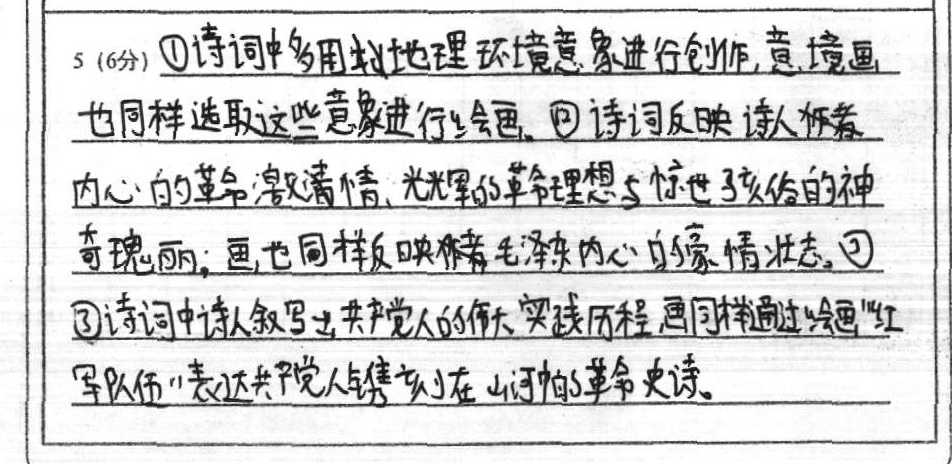 5 (6分) ①诗词中多用到地理环境意象进行创作,意境画
也同样选取这些意象进行绘画。②诗词反映诗人作者
内心的革命激情、光辉的革命理想与惊世骇俗的神
奇瑰丽;画也同样反映作者毛泽东内心的豪情壮志。③
③诗词中诗人叙写出共产党人的伟大实践历程,画同样通过绘画“红
军队伍”表达共产党人镌刻在山河中的革命史诗。